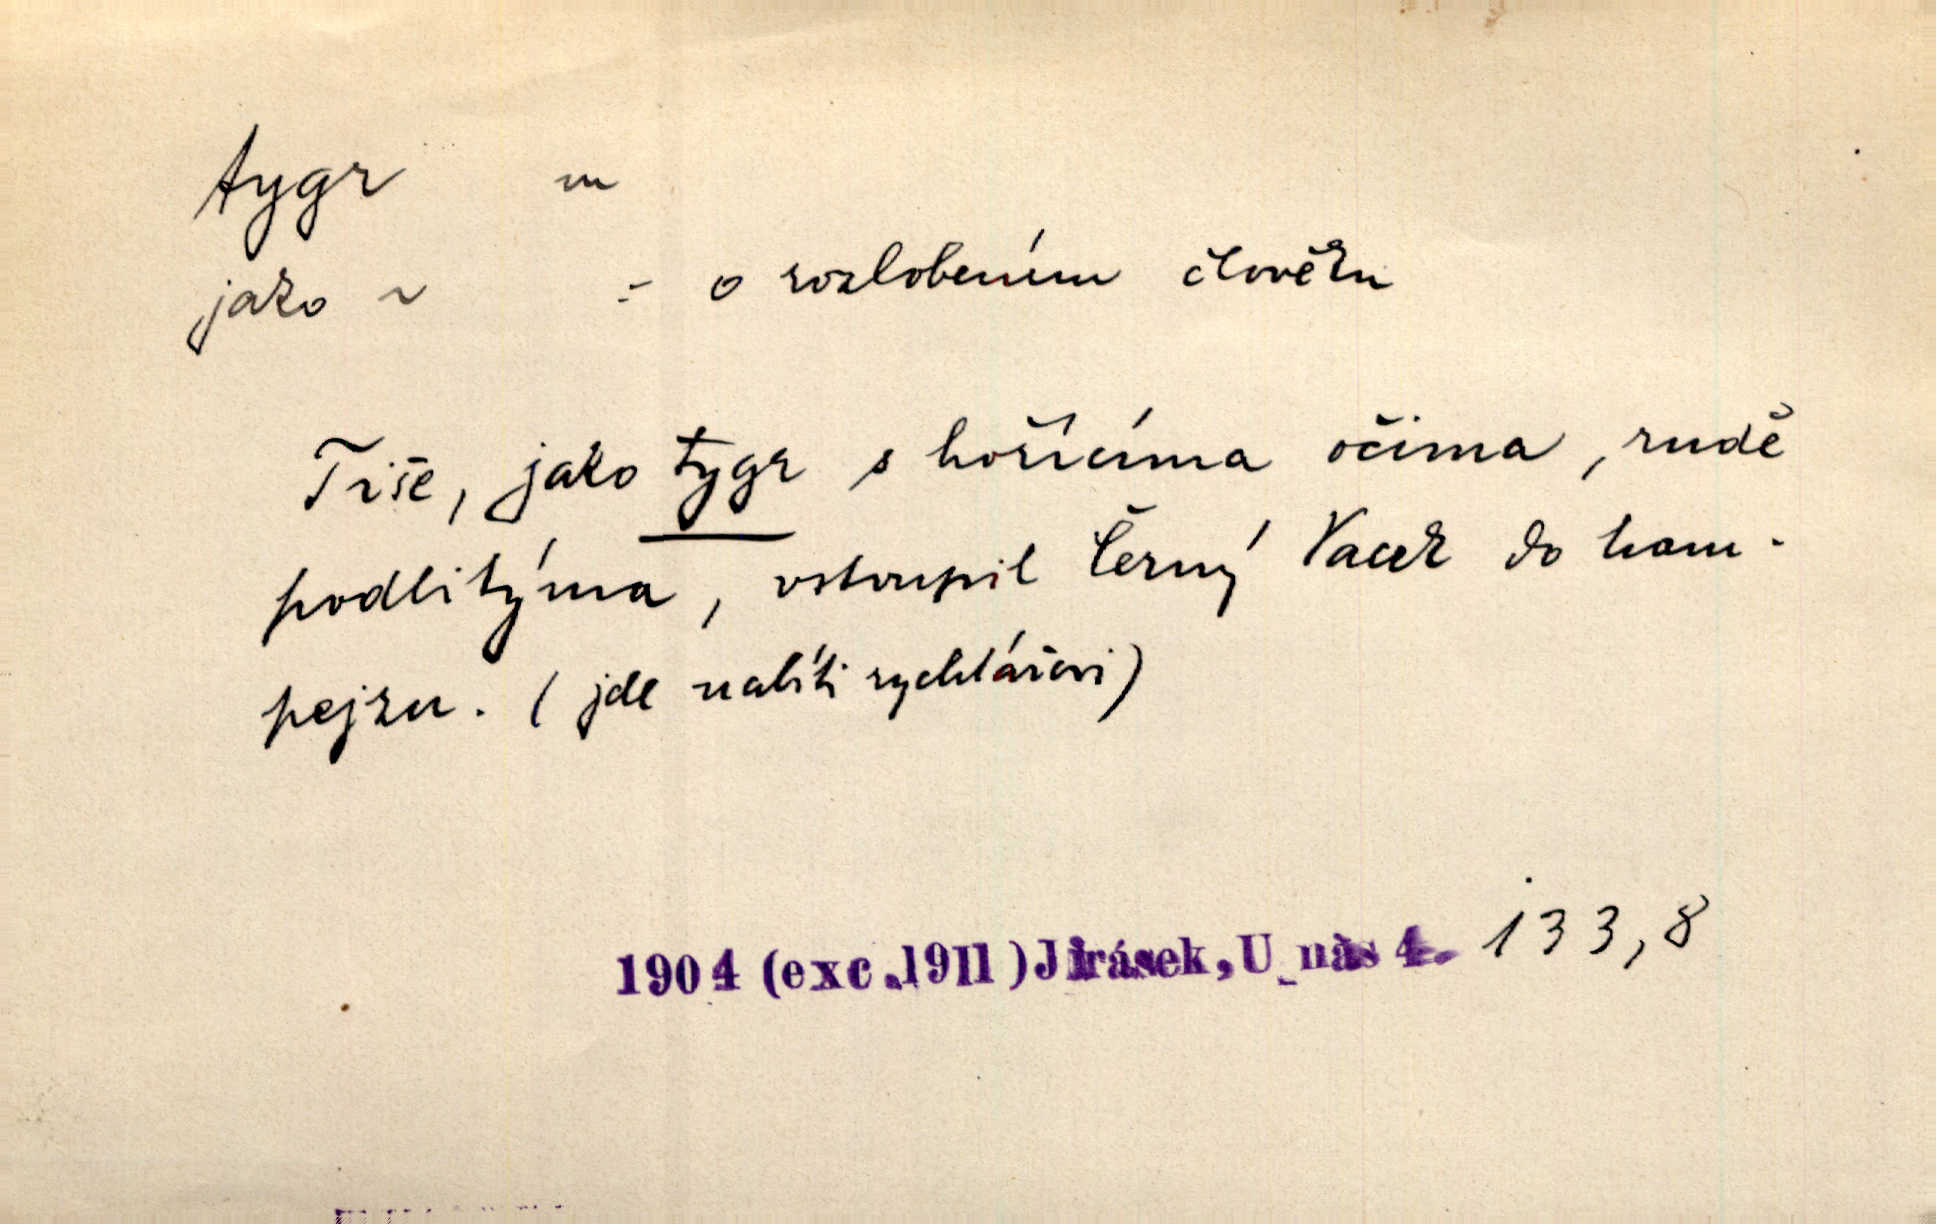 tygr m
jako ~ :- o rozlobeném člověku
Tiše, jako tygr s hořícíma očima, rudě
podlitýma, vstoupil Černý Vacek do ham-
pejzu. (jde nabíti rychtářovi)
1904 (exc.1911) Jirásek, U nás 4. 133,8